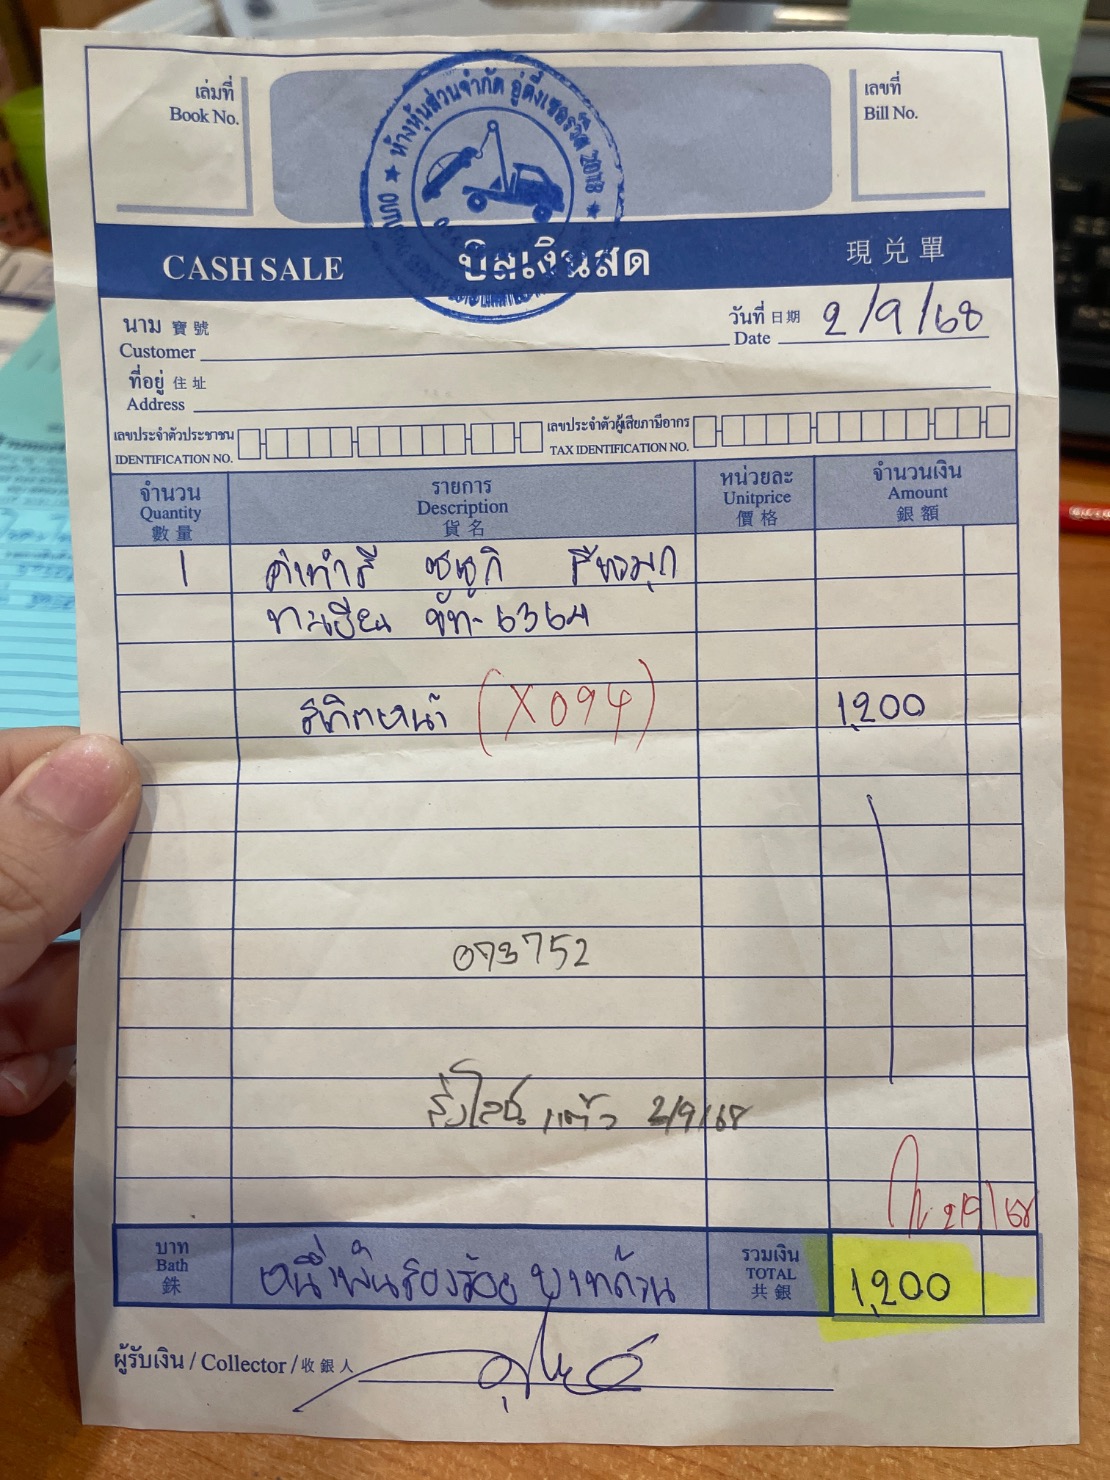 เล่มที่
Book No.
เลขที่
Bill No.
ห้างหุ้นส่วนจำกัด อู่ติ๋งเซอร์วิส 2018
CASH SALE บิลเงินสด 現兌單
นาม 寶號
Customer
วันที่ 日期 2/9/68
Date
ที่อยู่ 住址
Address
เลขประจำตัวประชาชน
IDENTIFICATION NO.
เลขประจำตัวผู้เสียภาษีอากร
TAX IDENTIFICATION NO.
จำนวน รายการ หน่วยละ จำนวนเงิน
Quantity Description Unitprice Amount
數量 貨名 價格 銀額
1 ค่าทำสี ซูซูกิ สีขาวมุก
ทะเบียน 6364
(X094) 1,200
073752
ส่งไลน์ แล้ว 2/9/68
2/9/68
บาท หนึ่งพันสองร้อย บาทถ้วน รวมเงิน 1,200
Bath TOTAL
銖 共銀
ผู้รับเงิน / Collector / 收銀人